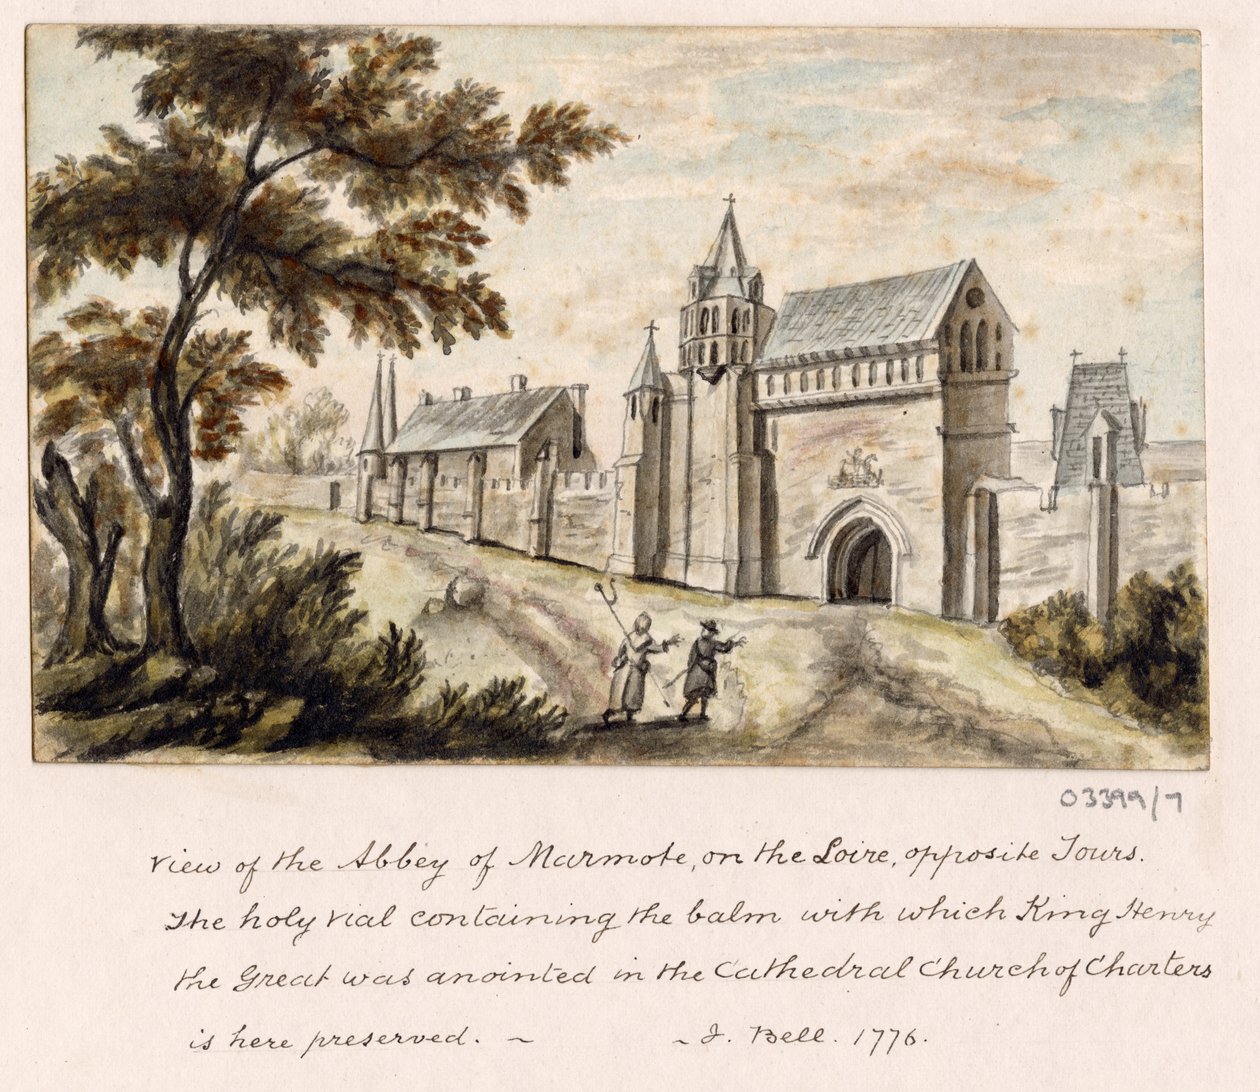 03399/7
View of the Abbey of Marmote, on the Loire, opposite Tours.
The holy vial containing the balm with which King Henry
the Great was anointed in the Cathedral Church of Charters
is here preserved. ~ ~ J. Bell. 1776.